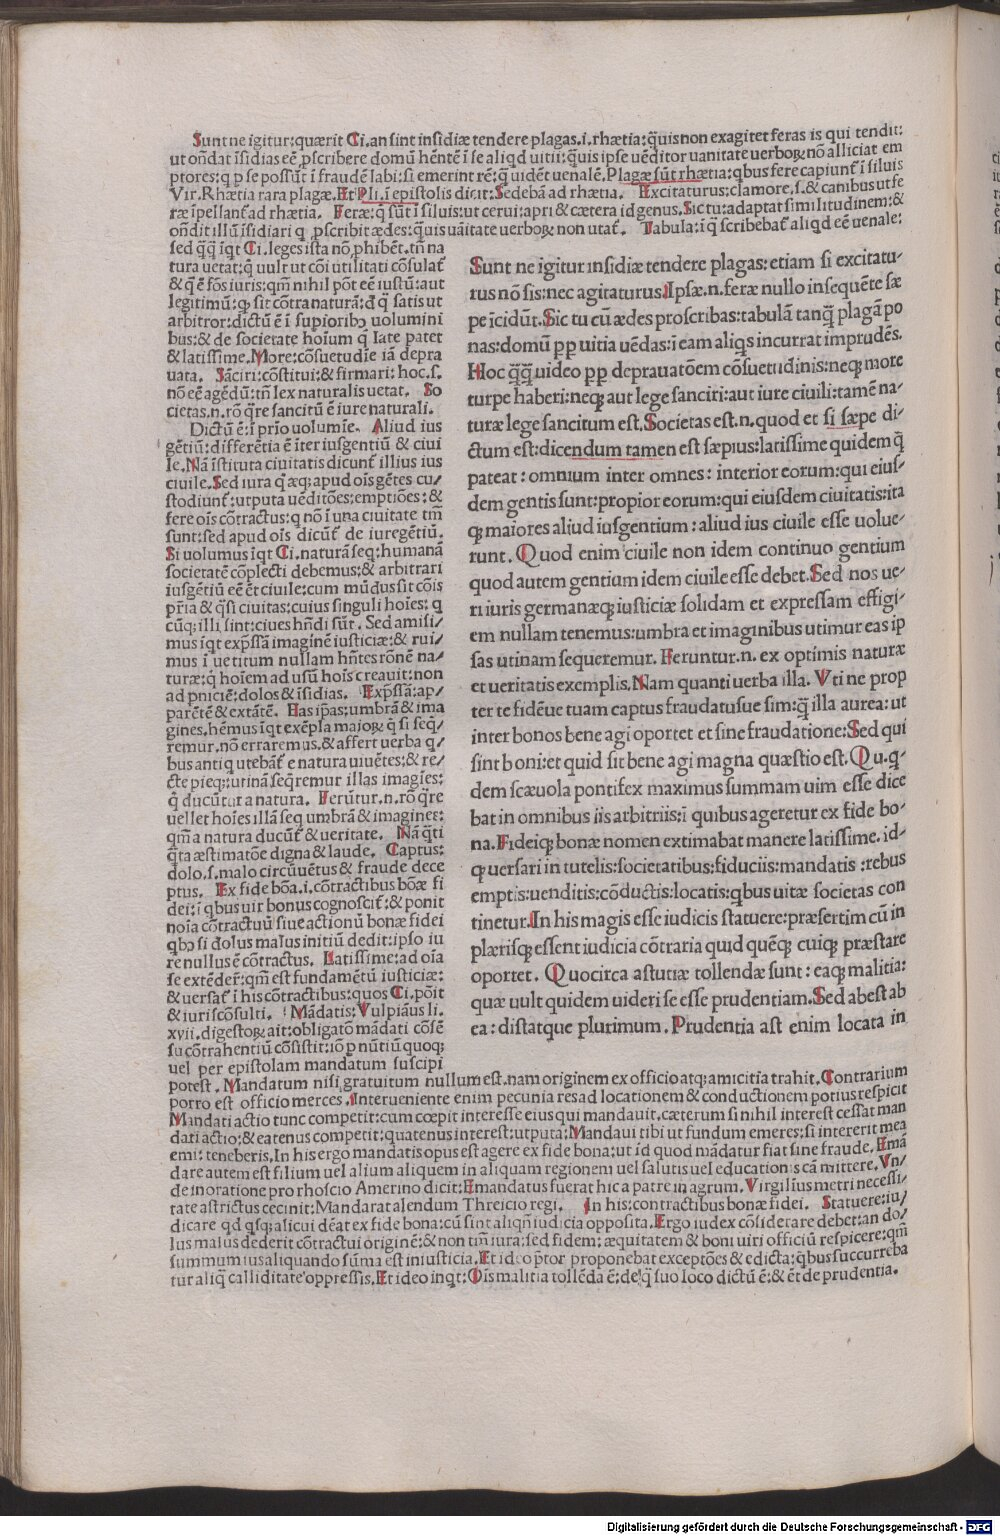 Sunt ne igitur:quærit Ci.an sint insidiæ tendere plagas.i.rhætia:q̃uis non exagitet feras is qui tendit:
ut on̄dat īsidias eē ꝓscribere domū hēntē ī se aliqd uitii:q̃uis ipse uēditor uanitate uerboꝝ nō alliciat em
ptores:q p se possūt ī fraudē labi:si emerint rē:q̄ uidēt uenalē.Plagæ sūt rhætia:qbus fere capiunt̄ ī siluis
Vir.Rhætia rara plagæ.Et Pli.ī epistolis dicit:Sedebā ad rhætia. Excitaturus:clamore.s.& canibus ut fe
ræ īpellant̄ ad rhætia. Feræ:q̄ sūt ī siluis:ut cerui:apri & cætera id genus.Sic tu:adaptat similitudinem:&
on̄dit illū īsidiari q ꝓscribit ædes:q̃uis uāitate uerboꝝ non utat̄. Tabula:ī q̄ scribebat̄ aliqd eē uenale:
sed q̄q̄ īqt Ci.leges ista nō ꝓhibēt.tn̄ na
tura uetat:q̄ uult ut cōi utilitati cōsulat̄
& q̄ ē fōs iuris:qm̄ nihil pōt eē iustū:aut
legitimū:qꝫ sit cōtra naturā:d̄ q̄ satis ut
arbitror:dictū ē ī supiorib𝔰 uolumini
bus:& de societate hoīum q̄ late patet
& latissime.More:cōsuetudīe iā depra
uata. Sāciri:cōstitui:& firmari:hoc.s.
nō eē agēdū:tn̄ lex naturalis uetat. So
cietas.n.rō q̄re sancitū ē iure naturali.
Dictū ē:ī prīo uolumīe. Aliud ius
gētiū:differētia ē īter iusgentiū & ciui
le.Nā īstituta ciuitatis dicunt̄ illius ius
ciuile.Sed iura q̄ æqꝫ apud oīs gētes cu/
stodiunt̄:utputa uēditōes:emptiōes:&
fere oīs cōtractus:q̄ nō ī una ciuitate tm̄
sunt:sed apud oīs dicūt̄ de iuregētiū.
Si uolumus īqt Ci.naturā seq:humanā
societatē cōplecti debemus:& arbitrari
iusgētiū eē ēt ciuile:cum mūdus sit cōis
pr̄ia & q̄si ciuitas:cuius singuli hoīes: q
cūqꝫ illi sint:ciues hn̄di sūt. Sed amisi/
mus īqt exp̄ssā imaginē iusticiæ:& rui/
mus ī uetitum nullam hn̄tes rōnē na/
turæ:q̄ hoīem ad usū hoīs creauit:non
ad pniciē:dolos & īsidias. Exp̄ssā:ap/
parētē & extātē. Has ip̄as:umbrā & ima
gines.hēmus īqt exēpla maioꝝ q̄ si seq̄/
remur.nō erraremus.& affert uerba q/
bus antiq utebāt̄ e natura uiuētes:& re/
cte pieqꝫ:utinā seq̄remur illas imagīes:
q̄ ducūtur a natura. Ferūtur.n.rō q̄re
uellet hoīes illā seq umbrā & imagines:
qm̄ a natura ducūt̄ & ueritate. Nā q̄ti
q̄ta æstimatōe digna & laude. Captus:
dolo.s.malo circūuētus & fraude dece
ptus. Ex fide bōa.i.cōtractibus bōæ fi
dei:ī qbus uir bonus cognoscit̄:& ponit
noīa cōtractuū siue actionū bonæ fidei
qbꝫ si dolus malus initiū dedit:ipso iu
re nullus ē cōtractus. Latissime:ad oīa
se extēder̄:qm̄ est fundamētū iusticiæ:
& uersat̄ ī his cōtractibus:quos Ci.pōit
& iuriscōsulti. Mādatis:Vulpiāus li.
xvii.digestoꝝ ait:obligatō mādati cōsē
su cōtrahentiū cōsistit:iō p nūtiū quoqꝫ
uel per epistolam mandatum suscipi
Sunt ne igitur insidiæ tendere plagas:etiam si excitatu/
rus nō sis:nec agitaturus.Ipsæ.n.feræ nullo insequēte sæ
pe īcidūt.Sic tu cū ædes proscribas:tabulā tanq̄ plagā po
nas:domū ꝓp uitia uēdas:ī eam aliqs incurrat imprudēs.
Hoc q̄q̄ uideo ꝓp deprauatōem cōsuetudinis:neqꝫ more
turpe haberi:neqꝫ aut lege sanciri:aut iure ciuili:tamē na/
turæ lege sancitum est.Societas est.n.quod et si sæpe di/
ctum est:dicendum tamen est sæpius:latissime quidem q̄
pateat : omnium inter omnes : interior eorum:qui eius/
dem gentis sunt:propior eorum:qui eiusdem ciuitatis:ita
qꝫ maiores aliud iusgentium : aliud ius ciuile esse uolue/
runt. Quod enim ciuile non idem continuo gentium
quod autem gentium idem ciuile esse debet.Sed nos ue/
ri iuris germanæqꝫ iusticiæ solidam et expressam effigi/
em nullam tenemus:umbra et imaginibus utimur eas ip
sas utinam sequeremur. Feruntur.n. ex optimis naturæ
et ueritatis exemplis.Nam quanti uerba illa. Vti ne prop
ter te fidēue tuam captus fraudatusue sim:q̄ illa aurea:ut
inter bonos bene agi oportet et sine fraudatione:Sed qui
sint boni:et quid sit bene agi magna quæstio est. Qu.q̄/
dem scæuola pontifex maximus summam uim esse dice
bat in omnibus iis arbitriis:ī quibus ageretur ex fide bo/
na.Fideiqꝫ bonæ nomen extimabat manere latissime. id/
qꝫ uersari in tutelis:societatibus:fiduciis:mandatis :rebus
emptis:uenditis:cōductis:locatis:qbus uitæ societas con
tinetur.In his magis esse iudicis statuere:præsertim cū in
plærisqꝫ essent iudicia cōtraria quid quēqꝫ cuiqꝫ præstare
oportet. Quocirca astutiæ tollendæ sunt : eaqꝫ malitia:
quæ uult quidem uideri se esse prudentiam.Sed abest ab
ea : distatque plurimum. Prudentia ast enim locata in
potest . Mandatum nisi gratuitum nullum est.nam originem ex officio atqꝫ amicitia trahit.Contrarium
porro est officio merces.Interueniente enim pecunia res ad locationem & conductionem potius respicit
Mandati actio tunc competit:cum cœpit interesse eius qui mandauit.cæterum si nihil interest cessat man
dati actio:& eatenus competit:quatenus interest:utputa:Mandaui tibi ut fundum emeres:si intererit mea
emi: teneberis.In his ergo mandatis opus est agere ex fide bona:ut id quod mādatur fiat sine fraude.Emā
dare autem est filium uel alium aliquem in aliquam regionem uel salutis uel educationis cā mittere.Vn/
de in oratione pro rhoscio Amerino dicit:Emandatus fuerat hic a patre in agrum.Virgilius metri necessi/
tate astrictus cecinit:Mandarat alendum Threicio regi. In his:contractibus bonæ fidei. Statuere:iu/
dicare qd qsqꝫ alicui dēat ex fide bona:cū sint aliqn̄ iudicia opposita.Ergo iudex cōsiderare debet:an do/
lus malus dederit cōtractui originē:& non tm̄ iura:sed fidem:æquitatem & boni uiri officiū respicere:qm̄
summum ius aliquando sūma est iniusticia.Et ideo p̄tor proponebat exceptōes & edicta:qbus succurreba
tur aliq̄ calliditate oppressis.Et ideo inqt:Oīs malitia tollēda ē:de q̄ suo loco dictū ē:& ēt de prudentia.
Digitalisierung gefördert durch die Deutsche Forschungsgemeinschaft - DFG